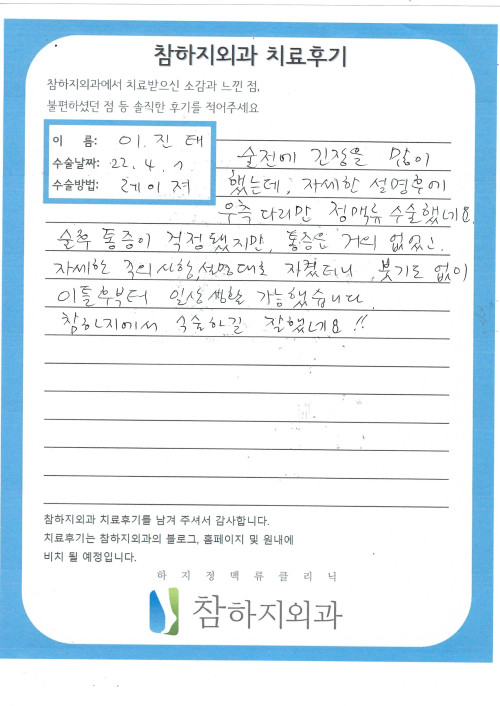 참하지외과 치료후기
참하지외과에서 치료받으신 소감과 느낀 점,
불편하셨던 점 등 솔직한 후기를 적어주세요
이 름: 이. 진 태
수술날짜: 22. 4. 7
수술방법: 레이저
술전에 긴장을 많이
했는데, 자세한 설명후에
우측 다리만 정맥류 수술했네요.
술후 통증이 걱정됐지만, 통증은 거의 없었고.
자세한 주의사항, 설명대로 지켰더니, 붓기도 없이
이틀후부터 일상생활 가능했습니다.
참하지에서 수술하길 잘했네요!!
참하지외과 치료후기를 남겨 주셔서 감사합니다.
치료후기는 참하지외과의 블로그, 홈페이지 및 원내에
비치 될 예정입니다.
하지정맥류클리닉
참하지외과